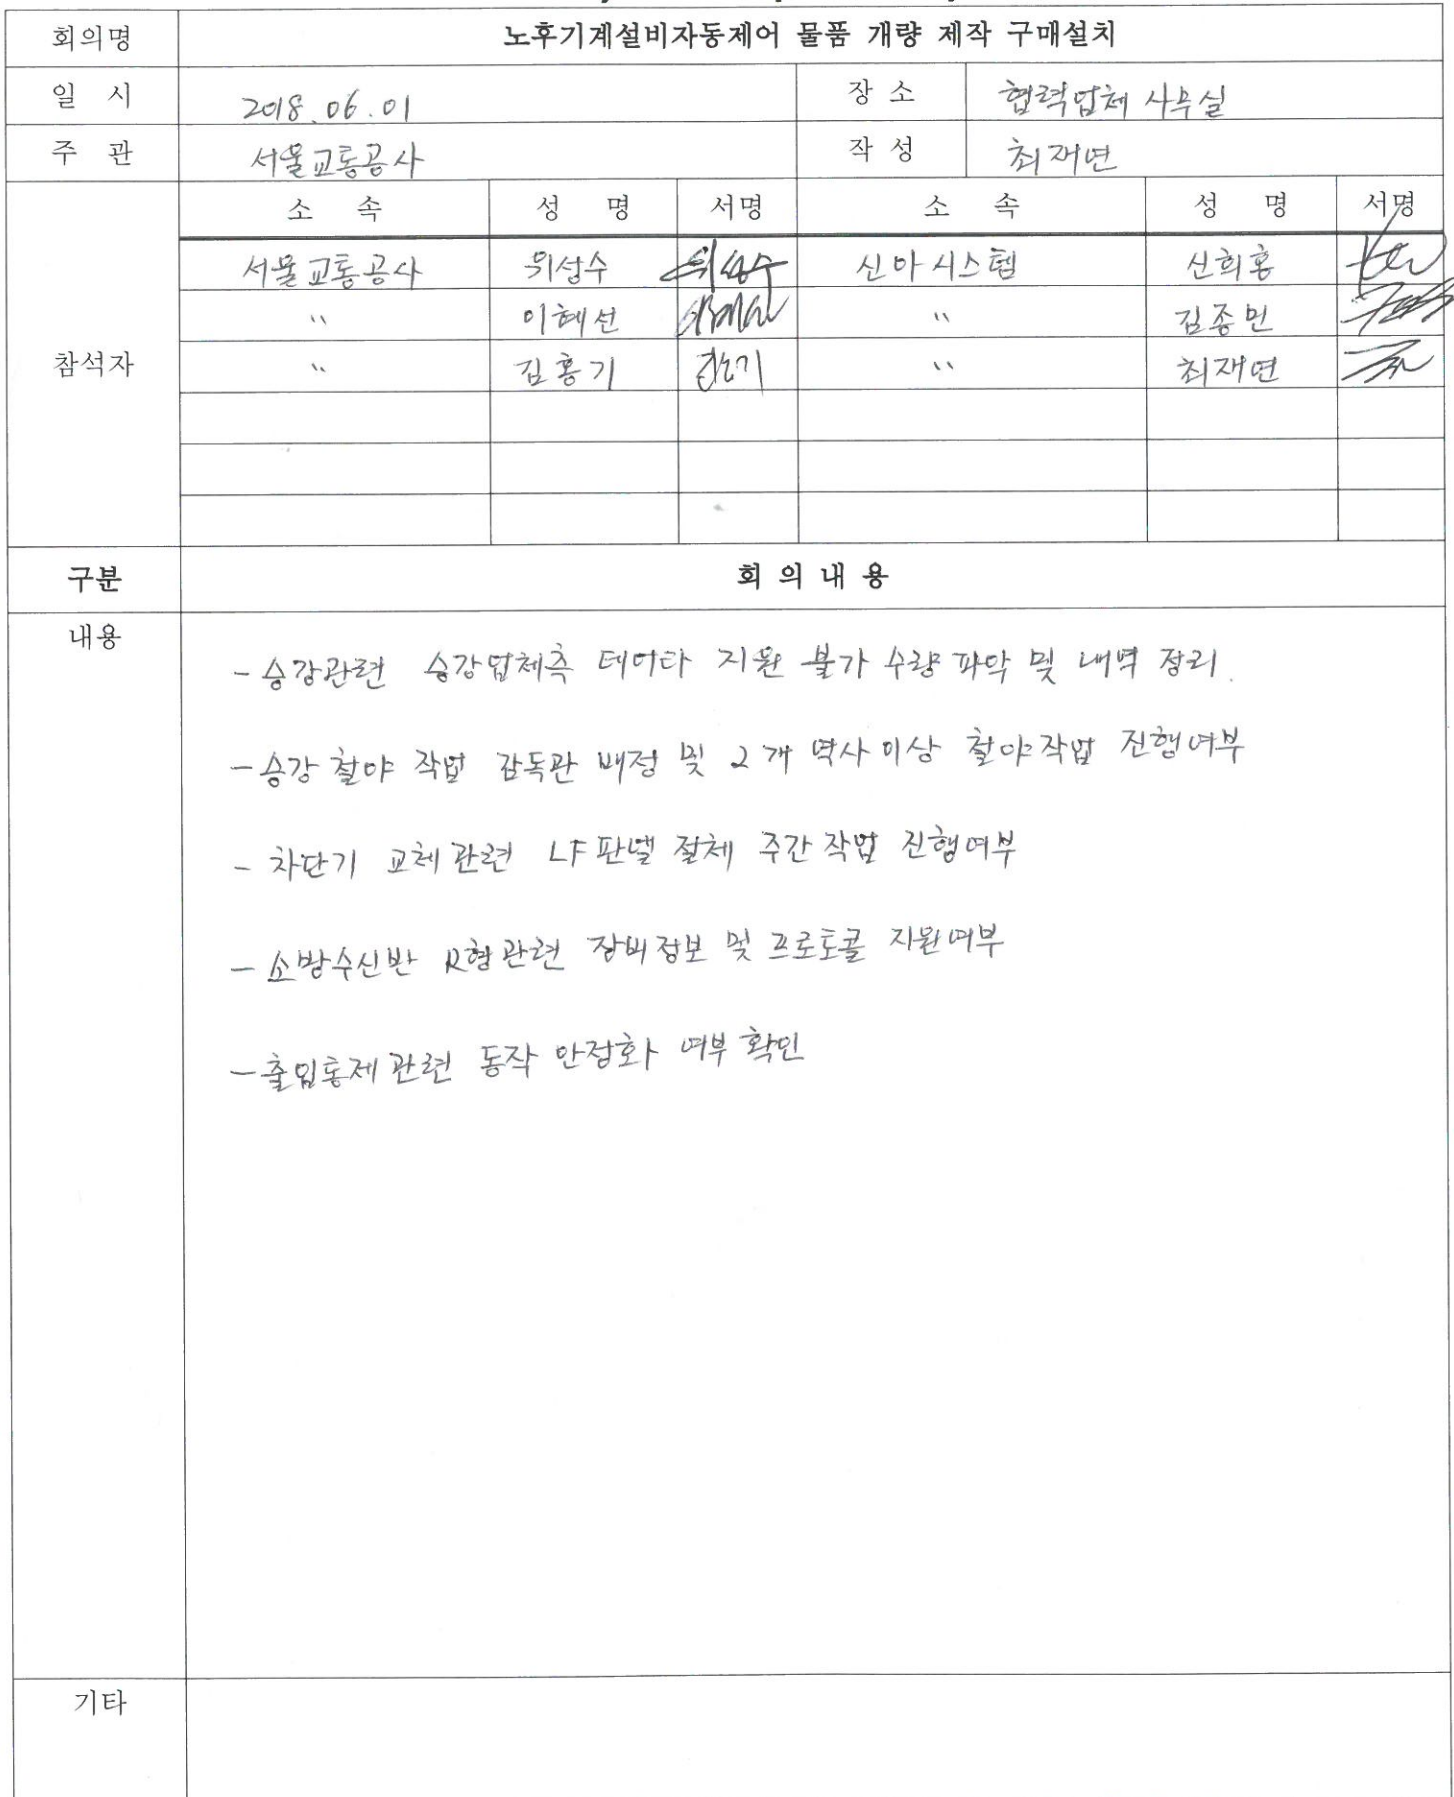 회의명 노후기계설비자동제어 물품 개량 제작 구매설치
일 시 2018.06.01 장 소 협력업체 사무실
주 관 서울교통공사 작 성 최재연
참석자
소 속 성 명 서명 소 속 성 명 서명
서울교통공사 위성수 위성수 신아시스템 신희홍
〃 이혜선 〃 김종민
〃 김홍기 〃 최재연
구분 회 의 내 용
내용
- 승강관련 승강업체측 데이타 지원 불가 수량 파악 및 내역 정리.
- 승강 철야 작업 감독관 배정 및 2개 역사 이상 철야작업 진행여부
- 차단기 교체 관련 LF판넬 절체 주간 작업 진행여부
- 소방수신반 R형 관련 장비정보 및 프로토콜 지원여부
- 출입통제 관련 동작 안정화 여부 확인
기타